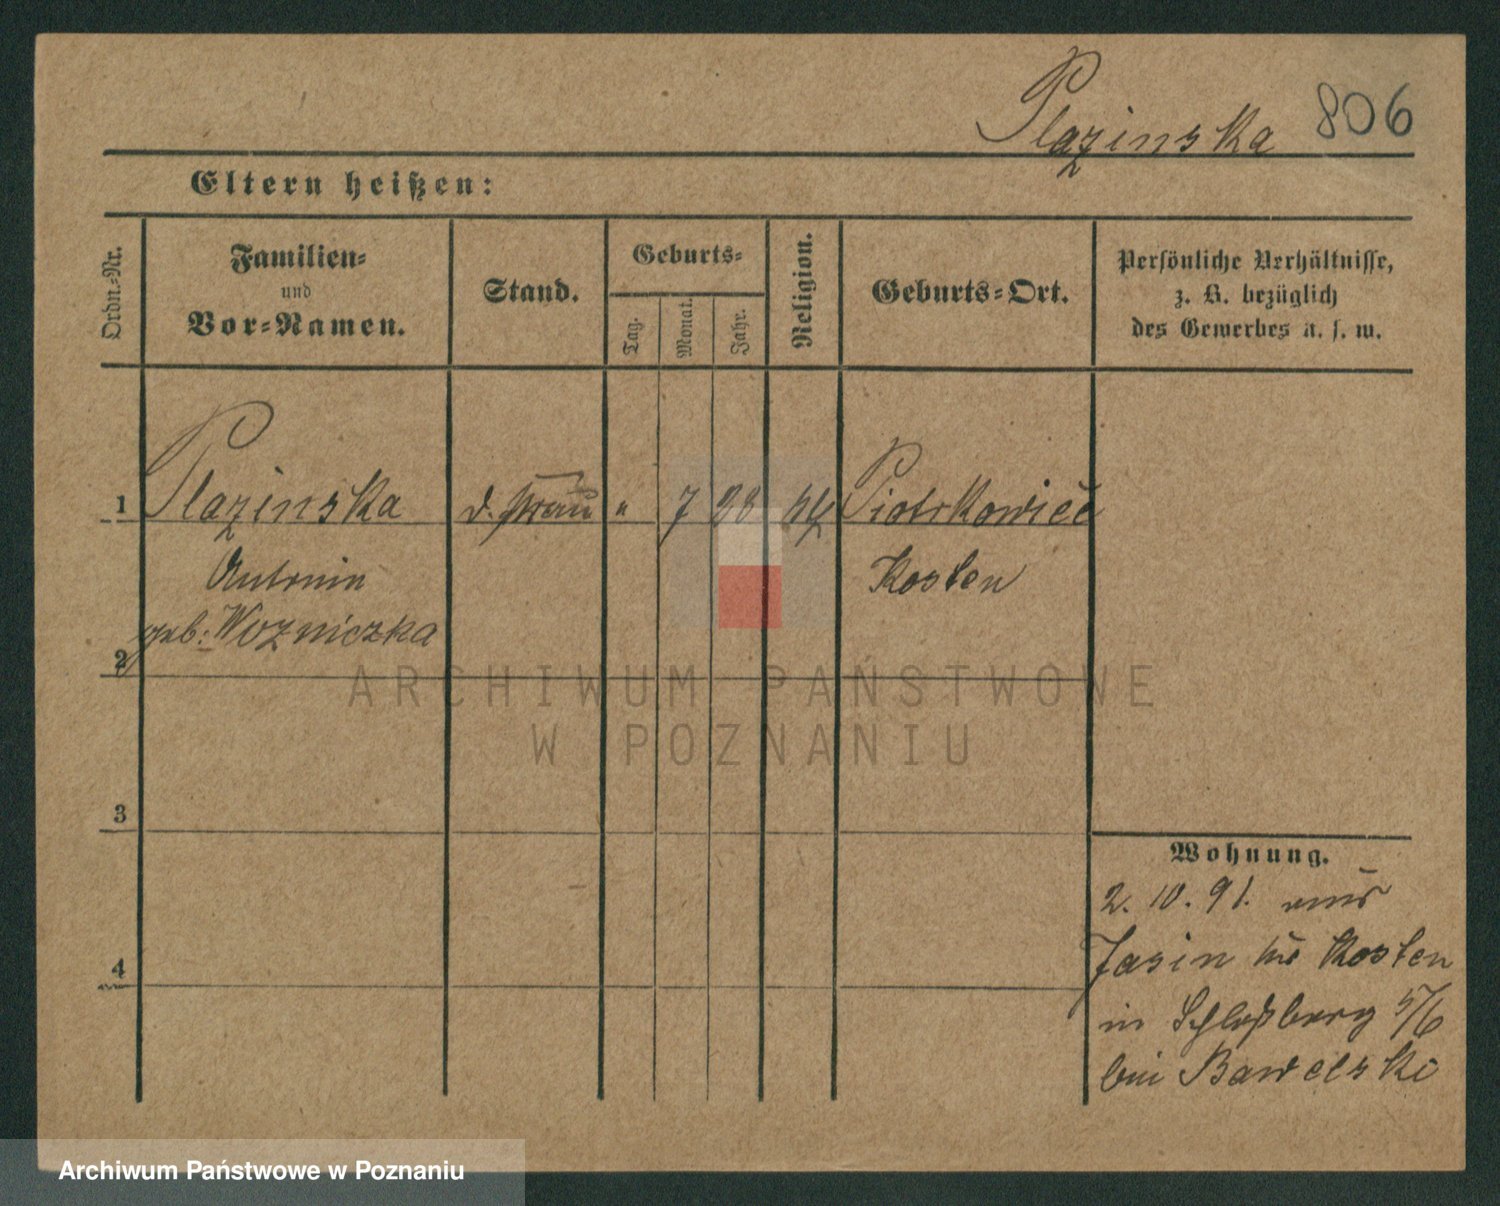 Plazinska 806
Eltern heißen:
Ordn.-Nr.
Familien-
und
Vor-Namen.
Stand.
Geburts-
Tag.
Monat.
Jahr.
Religion.
Geburts-Ort.
Persönliche Verhältnisse,
z. B. bezüglich
des Gewerbes u. s. w.
1 Plazinska d. Frau " 7 38 kth Piotrkowice
Antonin Kosten
geb: Wozniczka
2
3
4
Wohnung.
2. 10. 91. aus
Jasin Kosten
in Schloßberg 5/6
bei Bawelski
ARCHIWUM PAŃSTWOWE
W POZNANIU
Archiwum Państwowe w Poznaniu